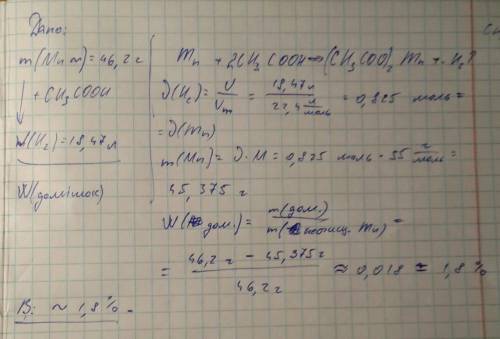 Дано:
m(Mn m) = 46,2 г
+ CH₃COOH
V(H₂) = 18,47 л
W(домішок)
Mn + 2CH₃COOH → (CH₃COO)₂Mn + H₂↑
ν(H₂) = V/Vm = 18,47 л / 22,4 л/моль = 0,825 моль =
= ν(Mn)
m(Mn) = ν · M = 0,825 моль · 55 г/моль =
45,375 г
W(дом.) = m(дом.) / m( Mn) =
= 46,2 г − 45,375 г / 46,2 г ≈ 0,018 = 1,8 %
В: ~ 1,8 % -